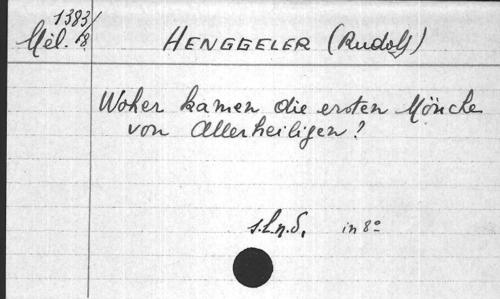 1383/
Mél. 18
HENGGELER (Rudolf)
Woher kamen die ersten Mönche
von Allerheiligen?
s.l.n.d. in 8º